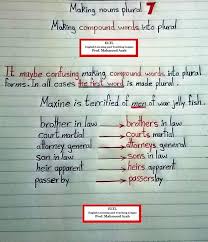 Making nouns plural 7
Making compound words into plural
ECEL
English Learning and Teaching Expert
Prof. Mahmoud Arab
It maybe confusing making compound words into plural
forms. In all cases the first word is made plural.
Maxine is terrified of men of war jelly fish.
brother in law → brothers in law
court martial → courts martial
attorney general → attorneys general
son in law → sons in law
heir apparent → heirs apparent
passer by → passersby
Prof. Mahmoud Arab